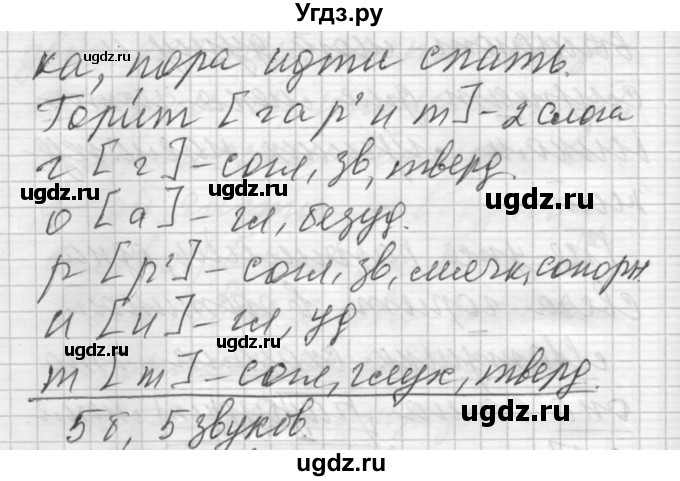 Угдз.ру
ка, пора идти спать.
Гори́т [гар'ит] - 2 слога
г [г] - согл, зв, тверд.
о [а] - гл, безуд.
р [р'] - согл, зв, мягк, сонорн
и [и] - гл, уд
т [т] - согл, глух, тверд.
5 б, 5 звуков.
ugdz.ru
ugdz.ru
ugdz.ru
ugdz.ru
ugdz.ru
ugdz.ru
ugdz.ru
ugdz.ru
ugdz.ru
ugdz.ru